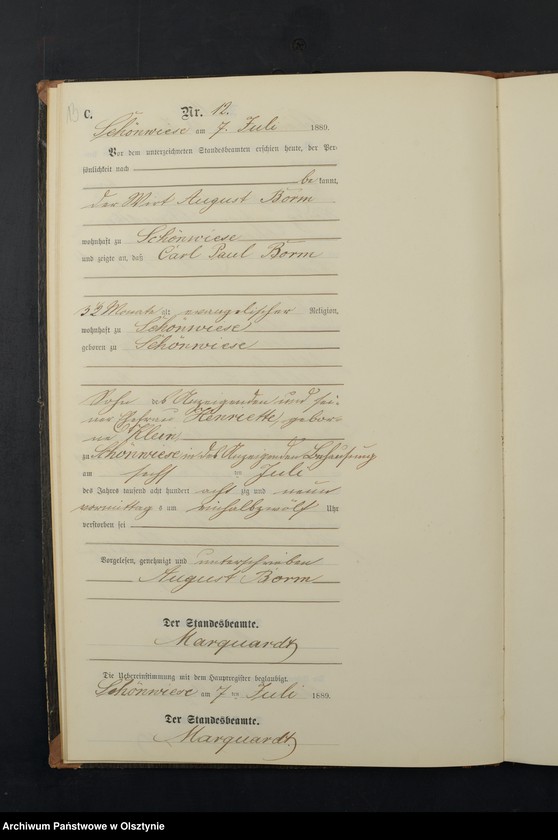 C.
Nr. 12.
Schönwiese am 7. Juli 1889.
Vor dem unterzeichneten Standesbeamten erschien heute, der Per-
sönlichkeit nach
be kannt,
der Wirt August Borm
wohnhaft zu Schönwiese
und zeigte an, daß Carl Paul Borm
Monate alt evangelischer Religion,
wohnhaft zu Schönwiese
geboren zu Schönwiese
Sohn des Anzeigenden und sei-
ner Ehefrau Henriette, gebor-
ne Klein,
zu Schönwiese in des Anzeigenden Behausung
am sechsten Juli
des Jahres tausend acht hundert acht zig und neun
vormittags um einhalbzwölf Uhr
verstorben sei
Vorgelesen, genehmigt und unterschrieben
August Borm
Der Standesbeamte.
Marquardt
Die Uebereinstimmung mit dem Hauptregister beglaubigt.
Schönwiese am 7ten Juli 1889.
Der Standesbeamte.
Marquardt.
Archiwum Państwowe w Olsztynie